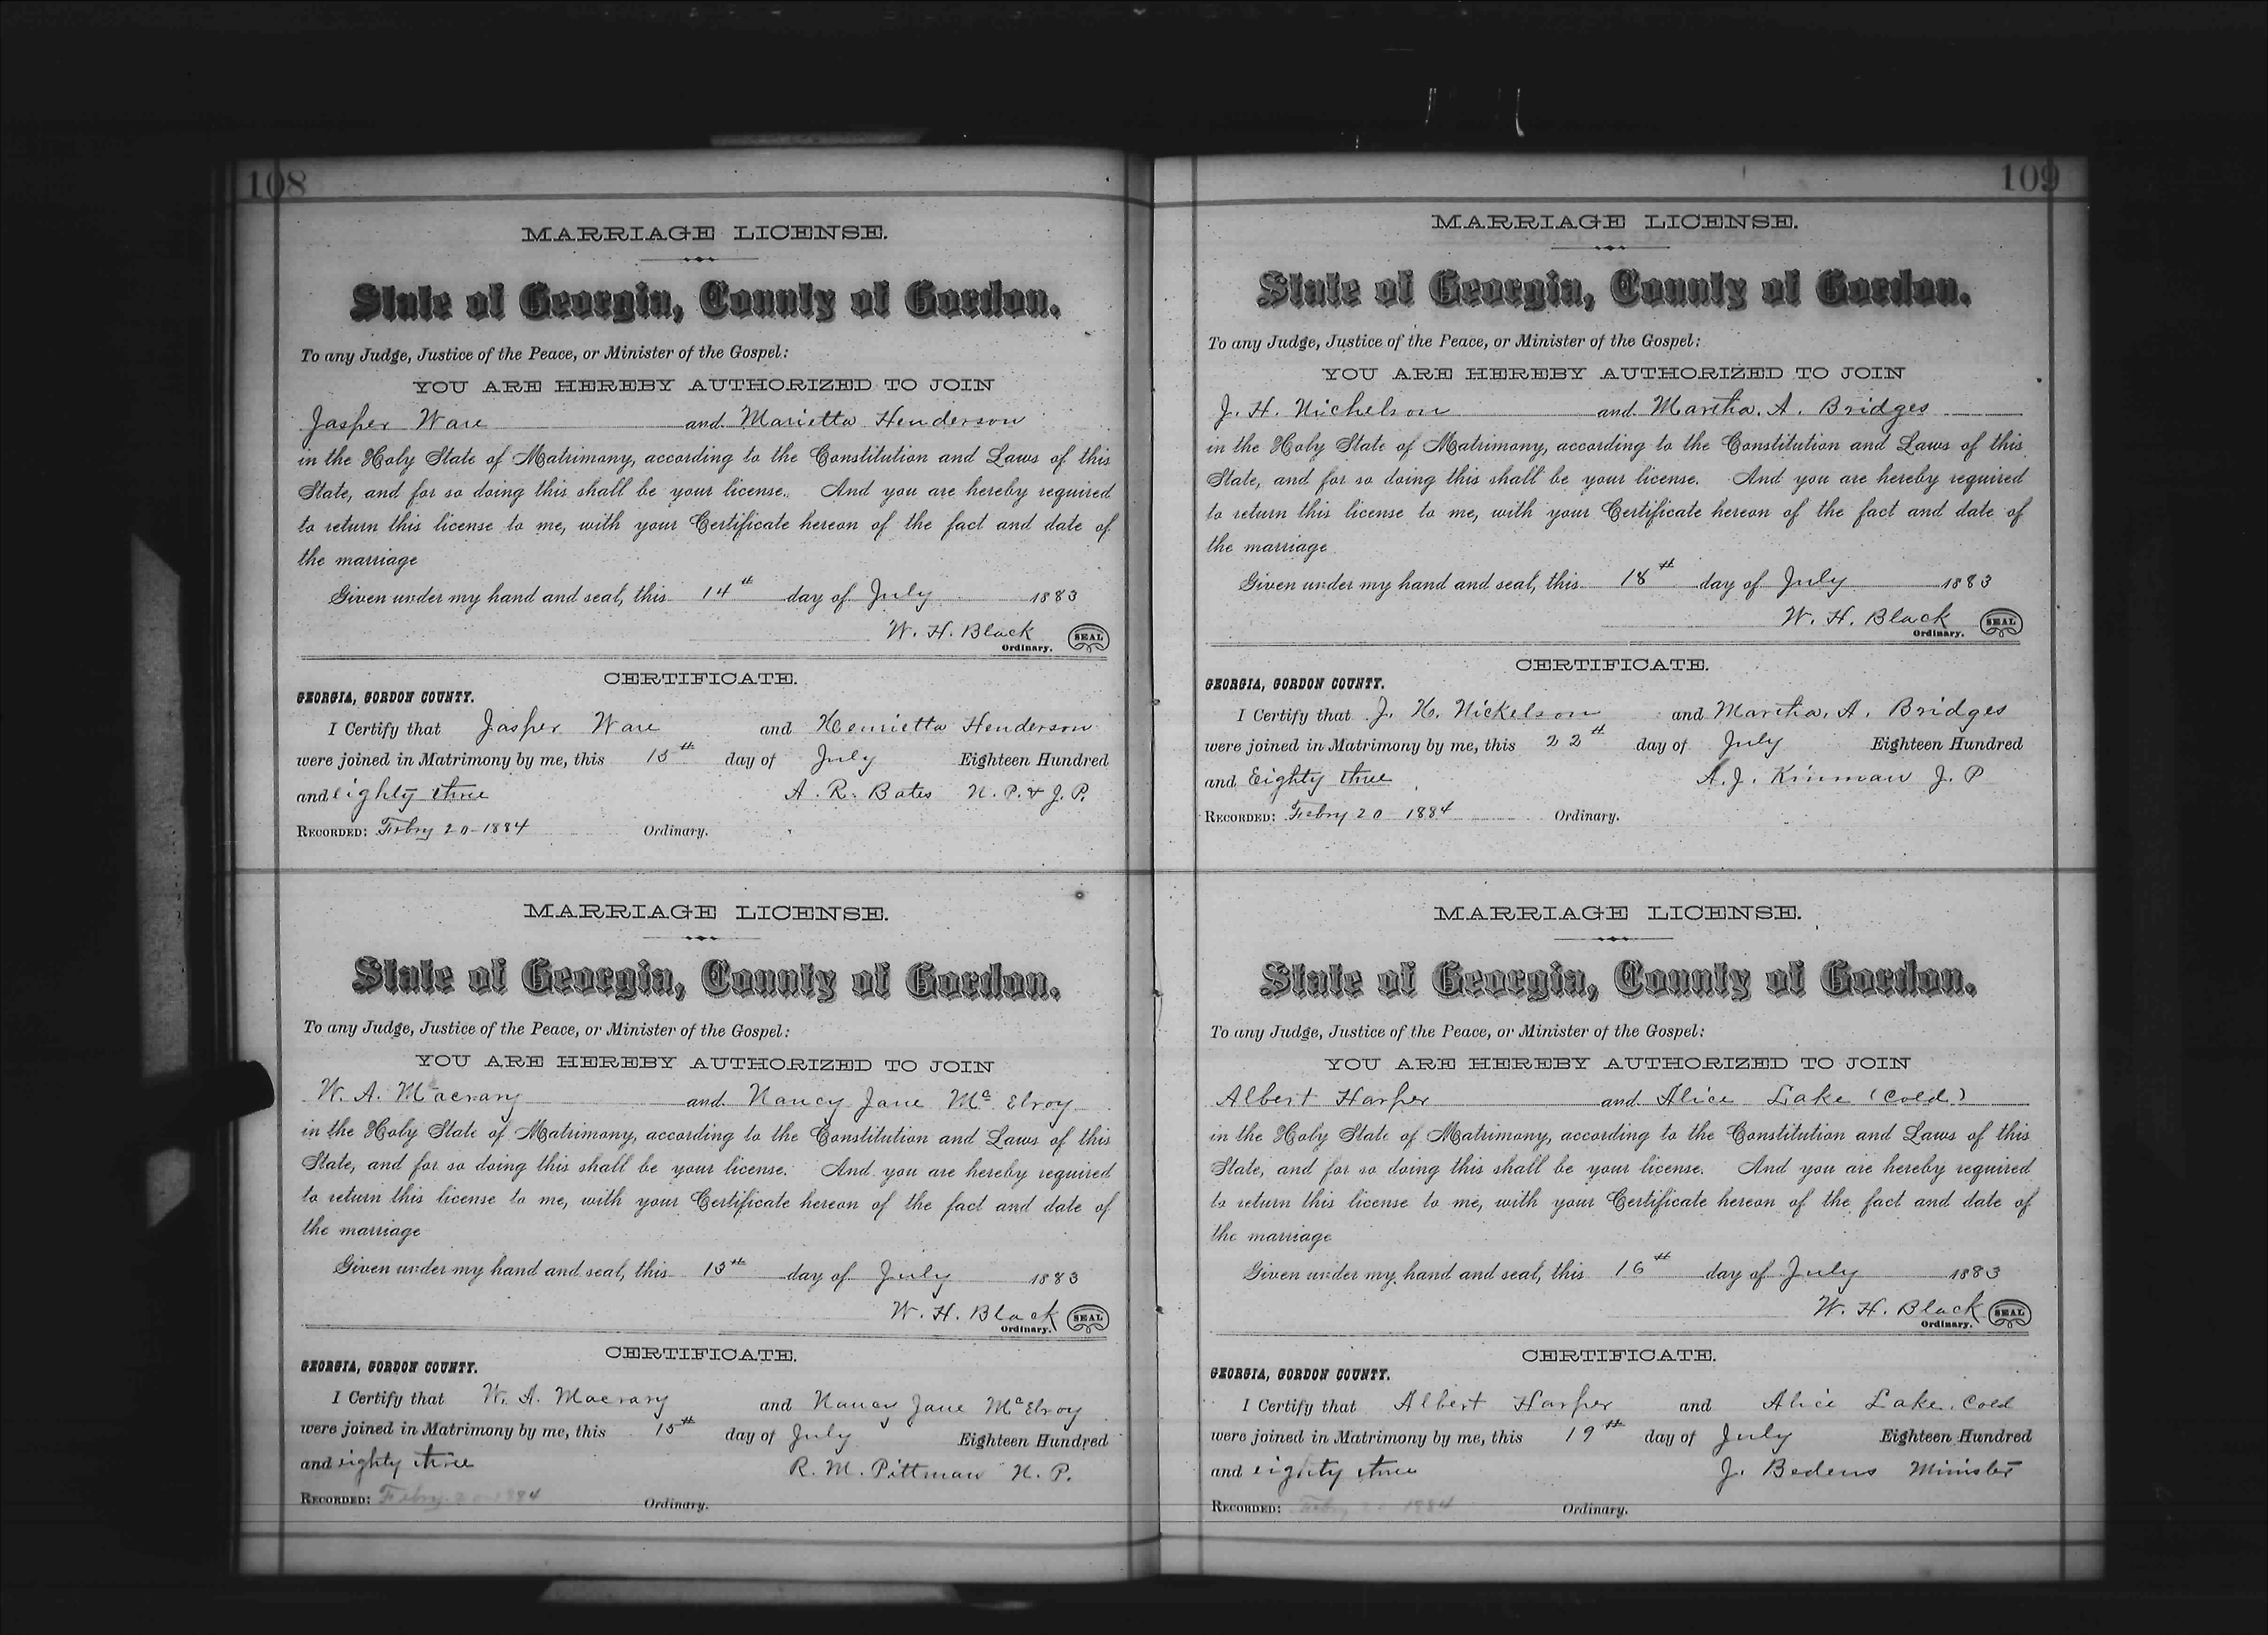 108
MARRIAGE LICENSE.
State of Georgia, County of Gordon.
To any Judge, Justice of the Peace, or Minister of the Gospel:
YOU ARE HEREBY AUTHORIZED TO JOIN
Jasper Ware and Marietta Henderson
in the Holy State of Matrimony, according to the Constitution and Laws of this
State, and for so doing this shall be your license. And you are hereby required
to return this license to me, with your Certificate hereon of the fact and date of
the marriage
Given under my hand and seal, this 14th day of July 1883
W. H. Black SEAL
Ordinary.
CERTIFICATE.
GEORGIA, GORDON COUNTY.
I Certify that Jasper Ware and Henrietta Henderson
were joined in Matrimony by me, this 15th day of July Eighteen Hundred
and eighty three A. R. Bates N. P. & J. P.
RECORDED: Febry 20-1884 Ordinary.
MARRIAGE LICENSE.
State of Georgia, County of Gordon.
To any Judge, Justice of the Peace, or Minister of the Gospel:
YOU ARE HEREBY AUTHORIZED TO JOIN
W. A. Macrary and Nancy Jane Mc Elroy
in the Holy State of Matrimony, according to the Constitution and Laws of this
State, and for so doing this shall be your license. And you are hereby required
to return this license to me, with your Certificate hereon of the fact and date of
the marriage
Given under my hand and seal, this 15th day of July 1883
W. H. Black SEAL
Ordinary.
CERTIFICATE.
GEORGIA, GORDON COUNTY.
I Certify that W. A. Macrary and Nancy Jane McElroy
were joined in Matrimony by me, this 15th day of July Eighteen Hundred
and eighty three R. M. Pittman N. P.
RECORDED: Febry 20 1884 Ordinary.
109
MARRIAGE LICENSE.
State of Georgia, County of Gordon.
To any Judge, Justice of the Peace, or Minister of the Gospel:
YOU ARE HEREBY AUTHORIZED TO JOIN
J. H. Nichelson and Martha. A. Bridges
in the Holy State of Matrimony, according to the Constitution and Laws of this
State, and for so doing this shall be your license. And you are hereby required
to return this license to me, with your Certificate hereon of the fact and date of
the marriage
Given under my hand and seal, this 18th day of July 1883
W. H. Black SEAL
Ordinary.
CERTIFICATE.
GEORGIA, GORDON COUNTY.
I Certify that J. H. Nickelson and Martha. A. Bridges
were joined in Matrimony by me, this 22th day of July Eighteen Hundred
and Eighty three A. J. Kinman J. P
RECORDED: Febry 20 1884 Ordinary.
MARRIAGE LICENSE.
State of Georgia, County of Gordon.
To any Judge, Justice of the Peace, or Minister of the Gospel:
YOU ARE HEREBY AUTHORIZED TO JOIN
Albert Harper and Alice Lake (Cold)
in the Holy State of Matrimony, according to the Constitution and Laws of this
State, and for so doing this shall be your license. And you are hereby required
to return this license to me, with your Certificate hereon of the fact and date of
the marriage
Given under my hand and seal, this 16th day of July 1883
W. H. Black SEAL
Ordinary.
CERTIFICATE.
GEORGIA, GORDON COUNTY.
I Certify that Albert Harper and Alice Lake. Cold
were joined in Matrimony by me, this 19th day of July Eighteen Hundred
and eighty three J. Bedens Minister
RECORDED: Febry 20 1884 Ordinary.